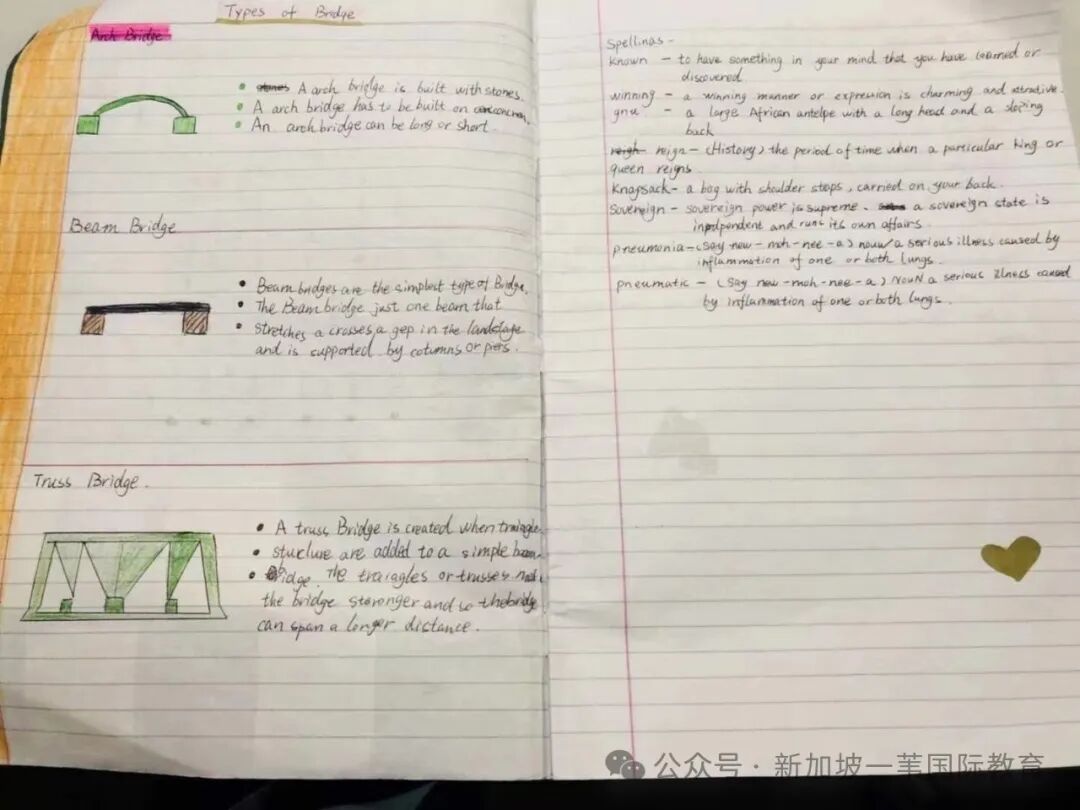 Types of Bridge
Arch Bridge
A arch bridge is built with stones.
A arch bridge has to be built on
An arch bridge can be long or short.
Beam Bridge
Beam bridges are the simplest type of Bridge.
The Beam bridge just one beam that
stretches a crosses a gep in the
and is supported by columns or piers.
Truss Bridge.
A truss Bridge is created when
are added to a simple
The or trusses
the bridge storonger and so the bridge
can span a longer distance.
Spellings -
Known - to have something in your mind that you have learned or
discovered
winning - a winning manner or expression is charming and attractive.
gnu - a large African antelpe with a long head and a sloping
back
reign - (History) the period of time when a particular king or
queen reigns
Knapsack - a bag with shoulder stops, carried on your back.
Sovereign - sovereign power is supreme. a sovereign state is
and runs its own affairs.
pneumonia - (say new - moh - nee - a) noun a serious illness caused by
inflammation of one or both lungs.
pneumatic - (say new - moh - nee - a) NOUN a serious illness caused
by inflammation of one or both lungs.
公众号 · 新加坡一苇国际教育